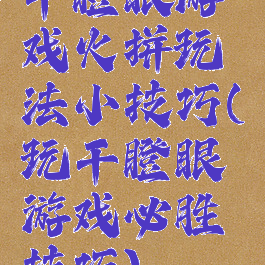 干瞪眼游
戏火拼玩
法小技巧(
玩干瞪眼
游戏必胜
技巧)